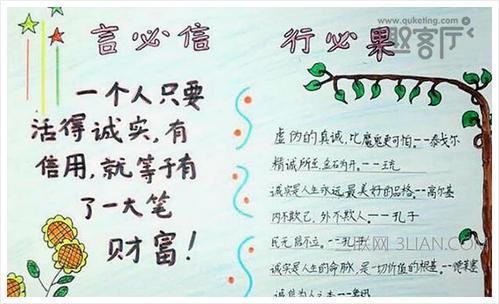 言必信 行必果
一个人只要
活得诚实,有
信用,就等于有
了一大笔
财富!
虚伪的真诚,比魔鬼更可怕.--泰戈尔
精诚所至,金石为开.--王充
诚实是人生永远最美好的品格.--高尔基
内不欺己,外不欺人.--孔子
民无信不立.--孔子
诚实是人生的命脉,是一切价值的根基.--德莱塞
诚信为人之本--鲁迅
www.quketing.com
趣客厅
联网 3LIAN.COM